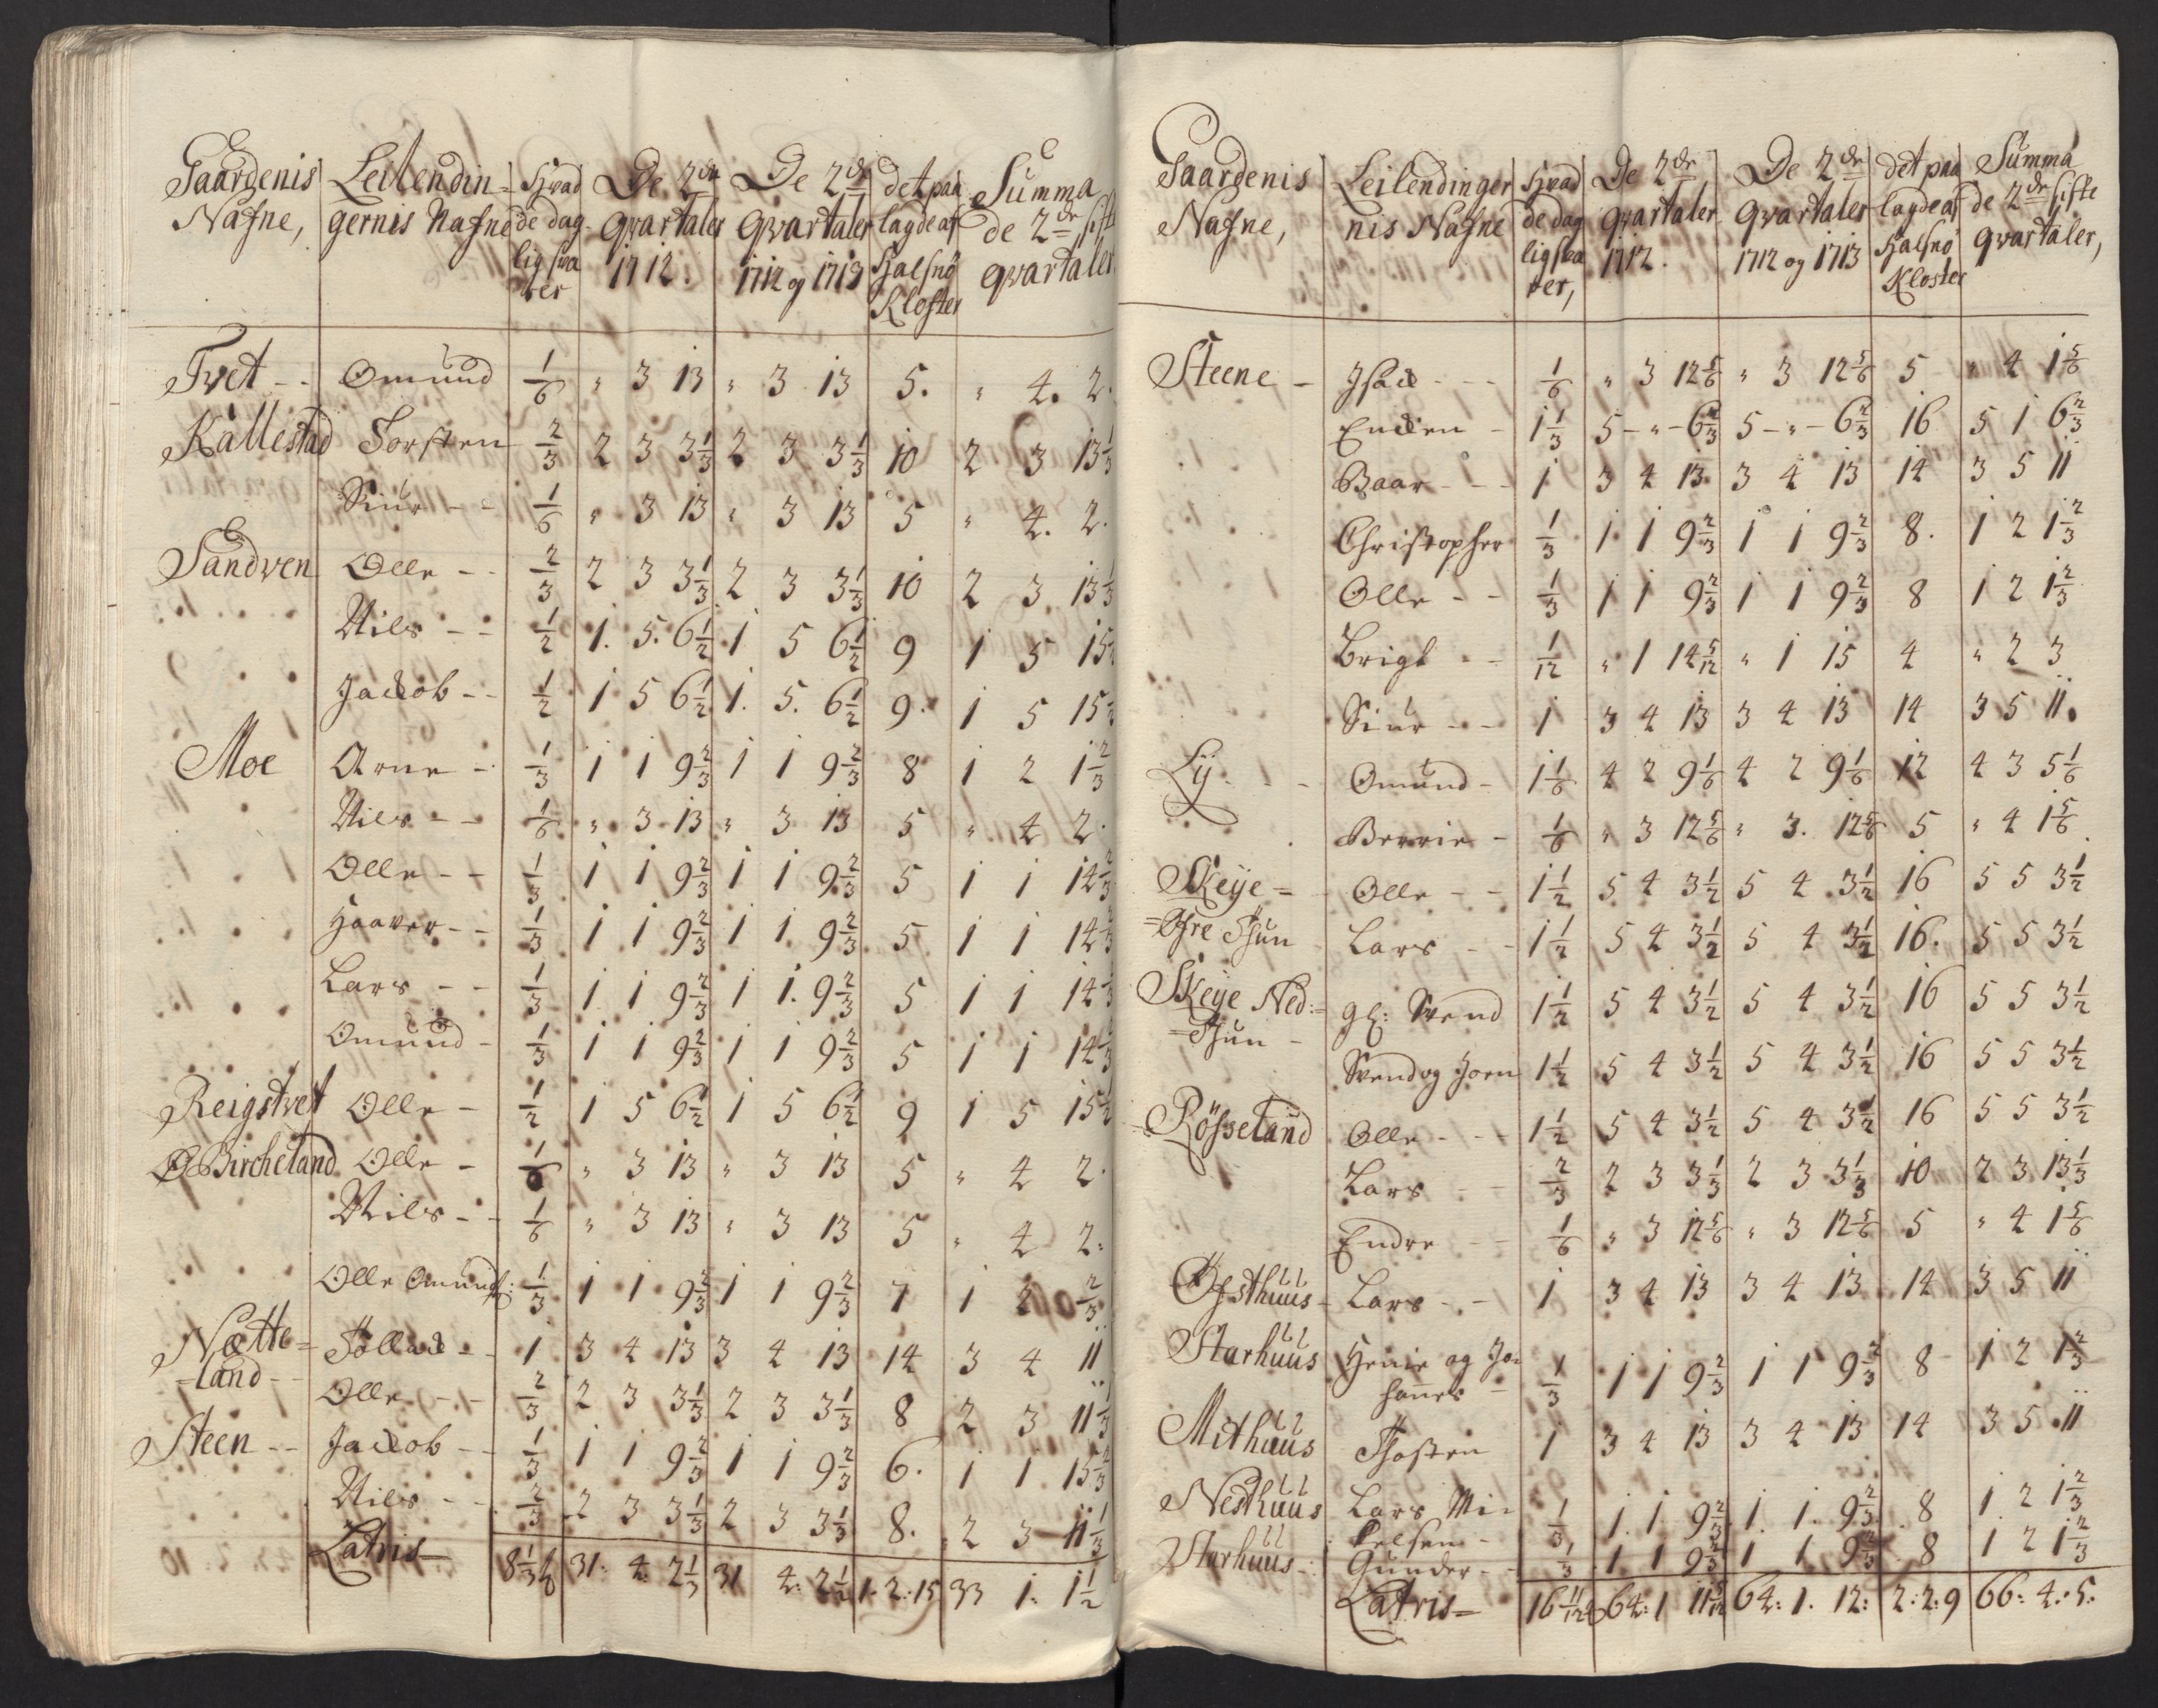 Gaardenis Nafne, | Leilendingernis Nafne | Hvad de daglig svarer | De 2de qvartaler 1712. | De 2de qvartaler 1712 og 1713 | det paalagde af Halsnö Kloster | Summa de 2de sist qvartaler
Tvet - - Omund 1/6 " 3 13 " 3 13 5. " 4. 2.
Kallestad Torsten 2/3 2 3 3 1/3 2 3 3 1/3 10 2 3 13 1/3
Siur - - 1/6 " 3 13 " 3 13 5 " 4. 2.
Sandven Olle - - 2/3 2 3 3 1/3 2 3 3 1/3 10 2 3 13 1/3
Nils - - 1/2 1. 5. 6 1/2 1 5 6 1/2 9 1 5 15 1/2
Jacob - - 1/2 1 5 6 1/2 1. 5. 6 1/2 9. 1 5 15 1/2
Moe Arne - 1/3 1 1 9 2/3 1 1 9 2/3 8 1 2 1 2/3
Nils - - 1/6 " 3 13 " 3 13 5 " 4 2.
Olle - - 1/3 1 1 9 2/3 1 1 9 2/3 5 1 1 14 2/3
Haaver - - 1/3 1 1 9 2/3 1 1 9 2/3 5 1 1 14 2/3
Lars - - 1/3 1 1 9 2/3 1 1. 9 2/3 5 1 1 14 2/3
Omund - 1/3 1 1 9 2/3 1 1 9 2/3 5 1 1 14 2/3
Reigstvet Olle - 1/2 1 5 6 1/2 1 5 6 1/2 9 1 5 15 1/2
Ö Bircheland Olle - 1/6 " 3 13 " 3 13 5 " 4 2.
Nils - - 1/6 " 3 13 " 3 13 5 " 4 2:
Olle Omunds: 1/3 1 1 9 2/3 1 1 9 2/3 7 1 2 2/3
Nætte= Tollac - - 1 3 4 13 3 4 13 14 3 4 11
=land - -
Olle - - 2/3 2 3 3 1/3 2 3 3 1/3 8 2 3 11 1/3
Steen - - Jacob - - 1/3 1 1 9 2/3 1 1 9 2/3 6. 1 1 15 2/3
Nils - - 2/3 2 3 3 1/3 2 3 3 1/3 8. 2 3 11 1/3
Latris - 8 1/3 31: 4: 2 1/3 31 4: 2 1/2 1. 2: 15 33 1: 1 1/2
Gaardenis Nafne, | Leilendingernis Nafne | Hvad de daglig svarer, | De 2de qvartaler 1712. | De 2de qvartaler 1712 og 1713 | det paalagde af Halsnö Kloster | Summa de 2de siste qvartaler,
Steene - Isac - - - 1/6 " 3 12 5/6 " 3 12 5/6 5 " 4 1 5/6
Endren - 1 1/3 5 - " - 6 2/3 5 - " - 6 2/3 16 5 1 6 2/3
Baar - - - 1 3 4 13 3 4 13 14 3 5 11
Christopher 1/3 1 1 9 2/3 1 1 9 2/3 8. 1 2 1 2/3
Olle - - 1/3 1 1 9 2/3 1 1 9 2/3 8 1 2 1 2/3
Brigt - - 1/12 " 1 14 5/12 " 1 15 4 " 2 3
Siur - - - 1 3 4 13 3 4 13 14 3 5 11.
Lÿ - - Omund - 1 1/6 4 2 9 1/6 4 2 9 1/6 12 4 3 5 1/6
Berrie - 1/6 " 3 12 5/6 " 3. 12 5/6 5 " 4 1 5/6
Skeÿe = Olle - - 1 1/2 5 4 3 1/2 5 4 3 1/2 16 5 5 3 1/2
=öfre Thun Lars - - 1 1/2 5 4 3 1/2 5 4 3 1/2 16. 5 5 3 1/2
Skeÿe Ned:= gl: Svend 1 1/2 5 4 3 1/2 5 4 3 1/2 16 5 5 3 1/2
=Thun -
Svend og Joen 1 1/2 5 4 3 1/2 5 4 3 1/2 16 5 5 3 1/2
Rösseland Olle - - - 1 1/2 5 4 3 1/2 5 4 3 1/2 16 5 5 3 1/2
Lars - - 2/3 2 3 3 1/3 2 3 3 1/3 10 2 3 13 1/3
Endre - - 1/6 " 3 12 5/6 " 3 12 5/6 5 " 4 1 5/6
Öfsthuus - Lars - - 1 3 4 13 3 4 13 14 3 5 11
Starhuus Henie og Jo=
hannes - 1/3 1 1 9 2/3 1 1 9 2/3 8 1 2 1 2/3
Mithuus Thosten 1 3 4 13 3 4 13 14 3 5 11
Nesthuus Lars Mi=
kelsen - 1/3 1. 1 9 2/3 1. 1. 9 2/3 8 1 2 1 2/3
Starhuus - Gunder - - 1/3 1. 1 9 2/3 1 1 9 2/3 8 1 2 1 2/3
Latris = 16 11/12 64: 1 11 5/12 64: 1. 12: 2: 2: 9 66: 4: 5.